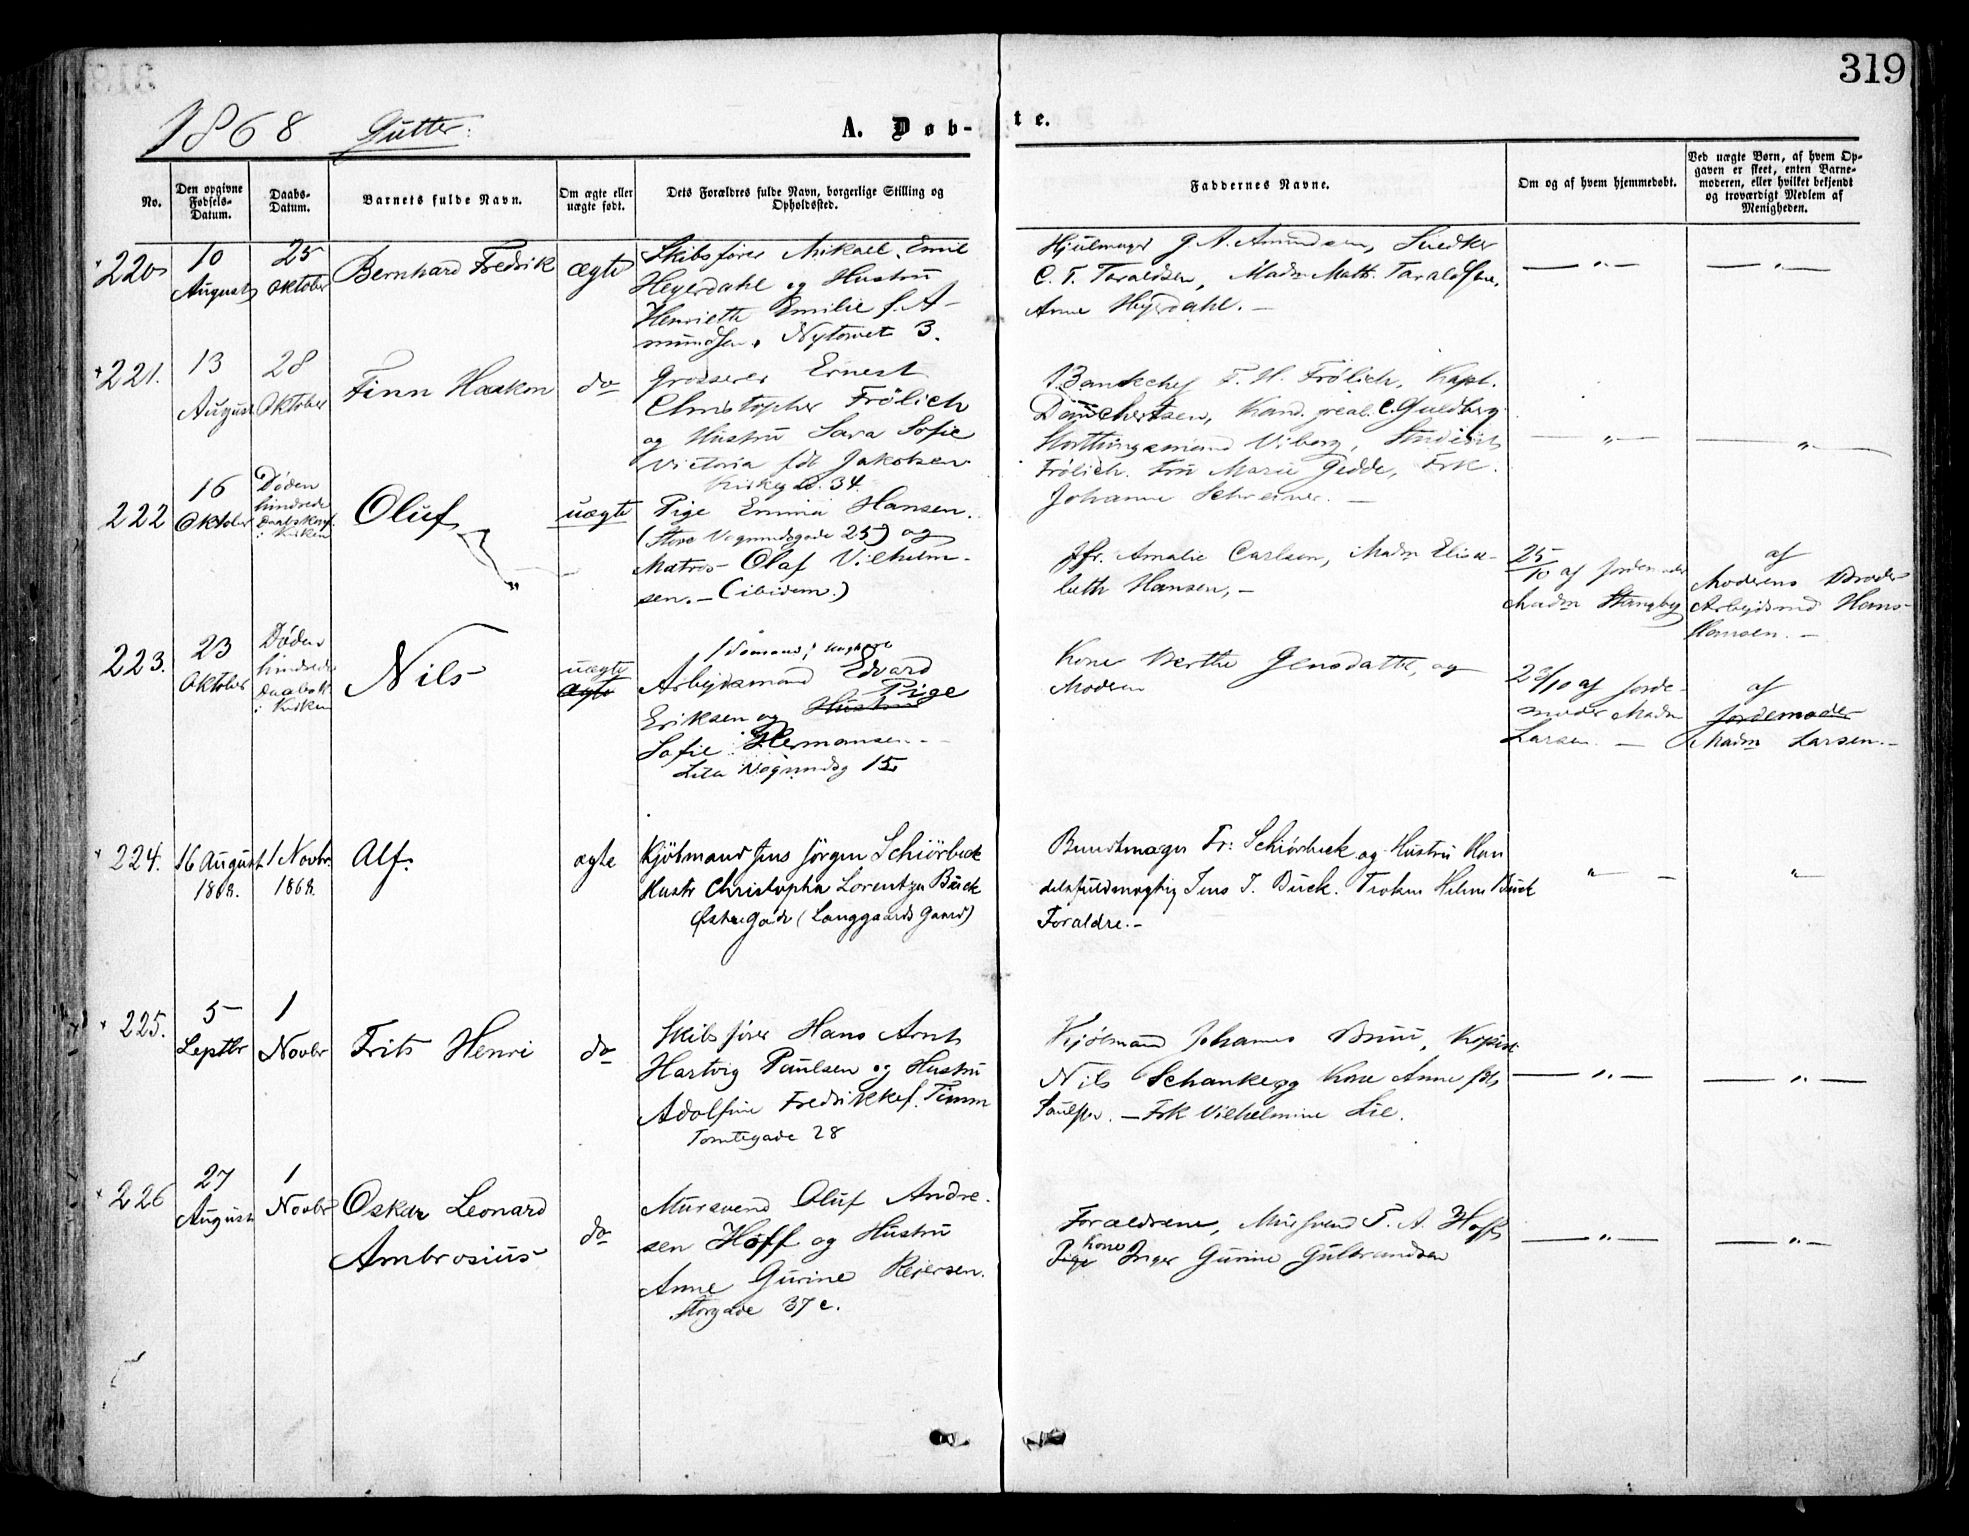 319
1868 Gutter:
A. Døb-
te.
No.
Den opgivne Fødsels-Datum.
Daabs-Datum.
Barnets fulde Navn.
Om ægte eller uægte født.
Dets Forældres fulde Navn, borgerlige Stilling og Opholdssted.
Faddernes Navne.
Om og af hvem hjemmedøbt.
Ved uægte Børn, af hvem Op-
gaven er skeet, enten Barne-
moderen, eller hvilket bekjendt
og troværdigt Medlem af
Menigheden.
220
10 August
25 Oktober
Bernhard Fredrik
ægte
Skibsfører Mikael Emil
Heyerdahl og Hustru
Henriette Emilie f. A-
mundsen. Nytorvet 3.
Hjulmager G. A. Amundsen, Snedker
C. T. Taraldsen, Madm Math. Taraldsen,
Anne Heyerdahl. —
— " —
— " —
221.
13 August
28 Oktober
Finn Haakon
do
Grosserer Ernest
Christopher Frölich
og Hustru Sara Sofie
Victoria fdt Jakobsen
Kirkegd. 34.
Bankchef F. H. Frölich, Kapt.
Danchertsen, Kand. real. C. Guldberg
Storthingsmand Viborg, Student
Frölich. Fru Marie Gedde, Frk.
Johanne Schreiner. —
— " —
— " —
222
16 Oktober
Døden
hindrede
Daabskaf.
i Kirken
Oluf
uægte
Pige Emma Hansen.
(Store Vognmdsgade 25) og
Matros Olaf Vilhelm-
sen. — (ibidem.)
Jfr. Amalie Carlsen, Madm Elisa-
beth Hansen, —
25/10 af Jordemoder
Madm Stangby
af
Moderens Broder
Arbeidsmd Hans
Hansen. —
223.
23 Oktober
Døden
hindrede
Daabsk.
i Kirken
Nils
uægte
ægte
Arbejdsmand Edvard
Eriksen og Hustru Pige
Sofie Hermansen —
Lille Vognmdsg 15
Kone Berthe Jensdatter, og
Moderen
23/10 af Jorde-
moder Madm
Larsen. —
af
Jordemoder
Madm Larsen. —
224.
16 August 1868.
1 Novbr. 1868.
Alf.
ægte
Kjøbmand Jens Jørgen Schiörbeck
Hustr Christopha Lorentza Buck
Østregade (Langgaards Gaard)
Bundtmager Fr: Schiörbeck og Hustru Han
delsfuldmægtig Jens T. Buck. Frøken Helene Buck
Forældre. —
" —
"
225.
5 Septbr
1 Novbr
Frits Henri
do
Skibsfører Hans Arnt
Hartvig Paulsen og Hustru
Adolfine Fredrikke f. Timm
Tomtegade 28
Kjøbmand Johannes Bruu, Kopist
Nils Schanke og Kone Anne fdt
Paulsen. — Frk Vilhelmine Lie.
— " —
— " —
226
27 August
1 Novbr
Oskar Leonard
Ambrosius
do
Mursvend Oluf Andre-
sen Hoff og Hustru
Anne Gurine Reiersen.
Storgade 37 c.
Forældrene, Mursvend P. A. Hoff,
Kone
Pige Inger Gurine Gulbrandsen
— " —
— " —